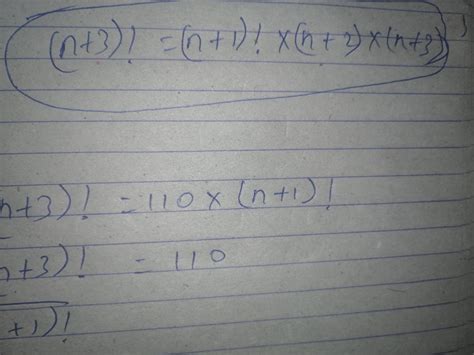 (n+3)! = (n+1)! × (n+2) × (n+3)
n+3)! = 110 × (n+1)!
n+3)! = 110
+1)!